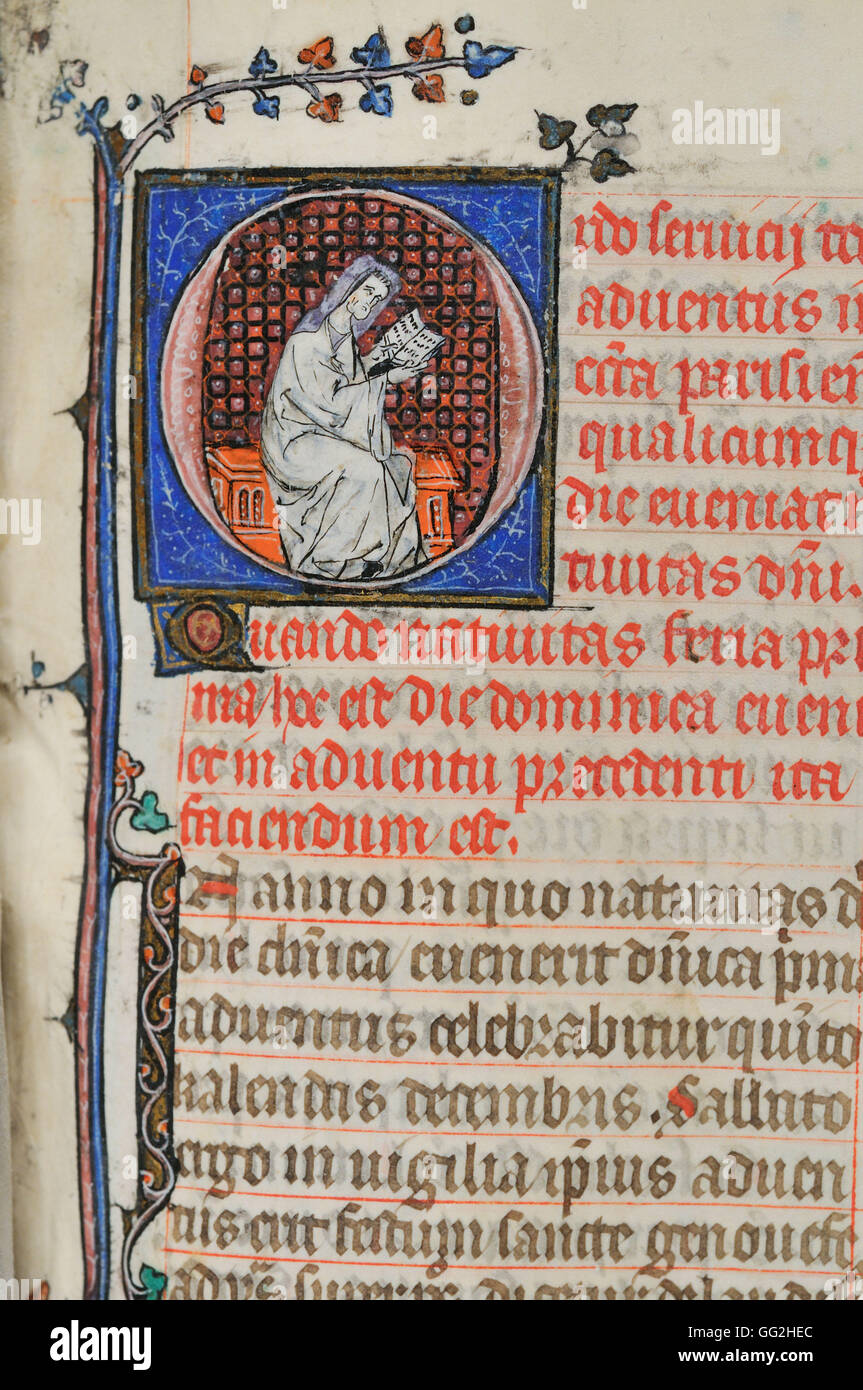 Ordo seruicij to
aduentus
ecc̄ia parisien
qualicumq
die eueniat
tiuitas dn̄i.
Quando natiuitas feria pri
ma hoc est die dominica eueni
et in aduentu precedenti ita
faciendum est.
In anno in quo natiuitas d
die dn̄ica euenerit dn̄ica pm
aduentus celebrabitur quīto
kalendas decembris. Sabbato
ergo in uigilia ip̄ius aduen
tus erit festum sancte genouefe
alamy
Image ID: GG2HEC
www.alamy.com